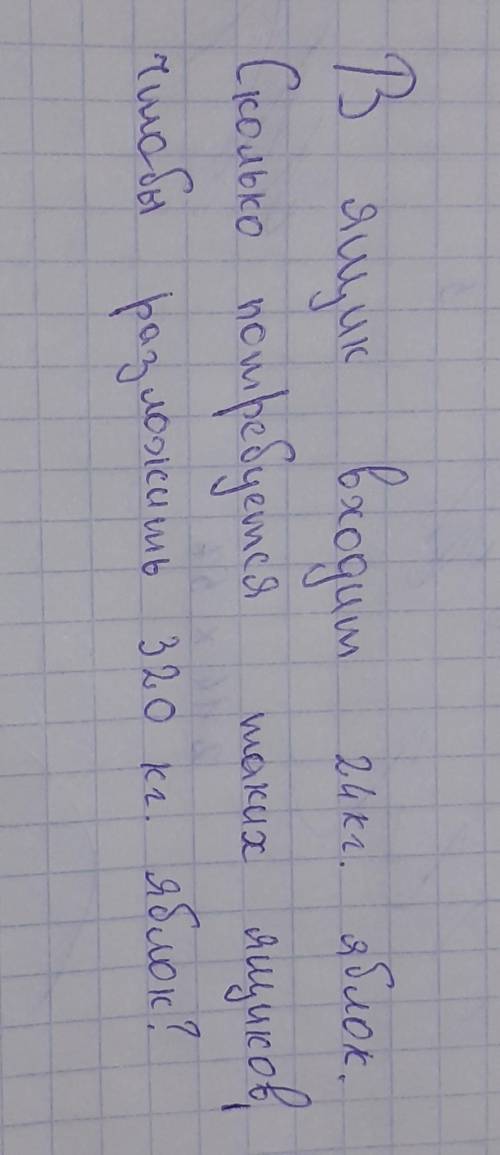 В ящик входит 24кг. яблок.
Сколько потребуется таких ящиков,
чтобы разложить 320 кг. яблок?